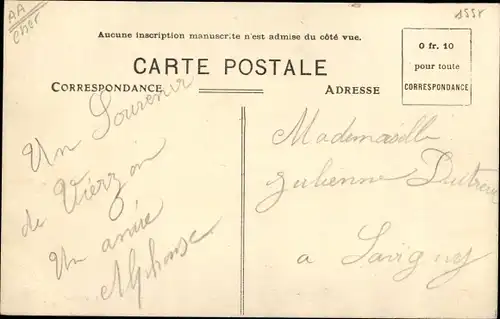 AA
1558
Aucune inscription manuscrite n'est admise du côté vue.
CARTE POSTALE
CORRESPONDANCE
ADRESSE
0 fr. 10
pour toute
CORRESPONDANCE
Un Souvenir
de Vierzon
Un amie
Alphonse
Mademoiselle
Julienne
a Savigny